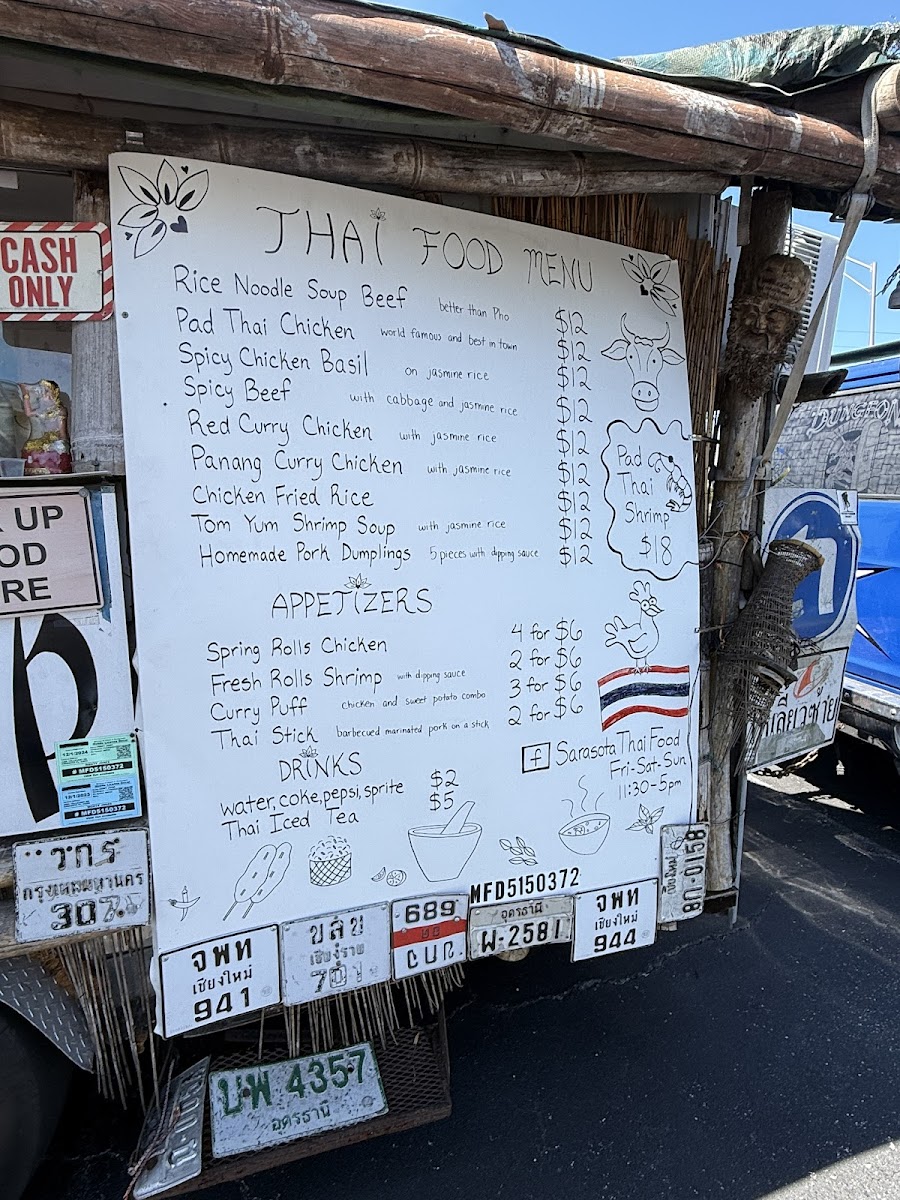 CASH
ONLY
THAI FOOD MENU
Rice Noodle Soup Beef better than Pho $12
Pad Thai Chicken world famous and best in town $12
Spicy Chicken Basil on jasmine rice $12
Spicy Beef with cabbage and jasmine rice $12
Red Curry Chicken with jasmine rice $12
Panang Curry Chicken with jasmine rice $12
Chicken Fried Rice $12
Tom Yum Shrimp Soup with jasmine rice $12
Homemade Pork Dumplings 5 pieces with dipping sauce $12
Pad
Thai
Shrimp
$18
APPETIZERS
Spring Rolls Chicken 4 for $6
Fresh Rolls Shrimp with dipping sauce 2 for $6
Curry Puff chicken and sweet potato combo 3 for $6
Thai Stick barbecued marinated pork on a stick 2 for $6
DRINKS
water, coke, pepsi, sprite $2
Thai Iced Tea $5
f Sarasota Thai Food
Fri-Sat-Sun
11:30-5pm
K UP
OD
RE
12/1/2024
# MFD5150372
12/1/2023
# MFD5150372
MFD5150372
กรุงเทพมหานคร
307
จพท
เชียงใหม่
941
ขลข
เชียงราย
701
689
อุดรธานี
ผ-2581
จพท
เชียงใหม่
944
เชียงใหม่
80-0158
บพ 4357
อุดรธานี
DUNGEON